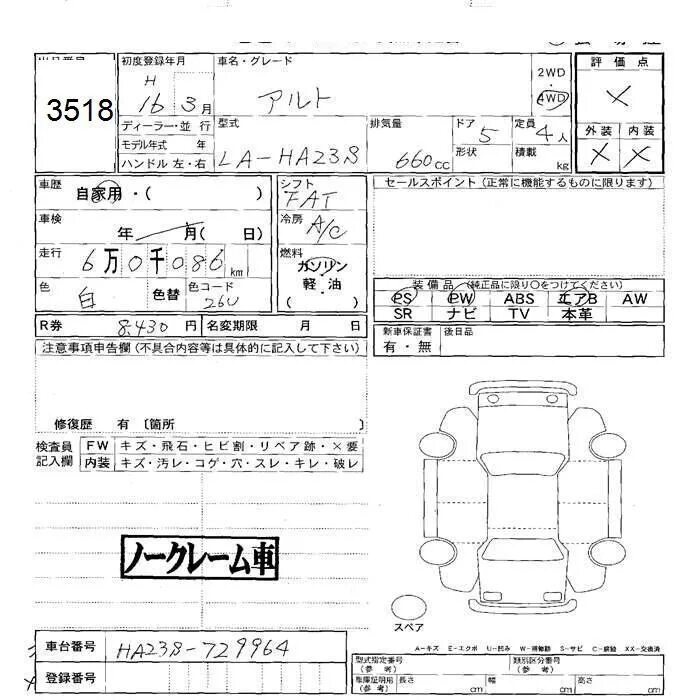 3518
初度登録年月
H
16 3月
車名・グレード
アルト
2WD
4WD
評価点
×
ディーラー・並行
モデル年式 年
ハンドル 左・右
型式
LA-HA23S
排気量
660cc
ドア
5
形状
定員
4人
積載
kg
外装 内装
× ×
車歴
自家用・( )
シフト
FAT
セールスポイント (正常に機能するものに限ります)
車検
年 月( 日)
冷房
A/C
走行
6万0千086km
燃料
ガソリン
軽・油
( )
色
白
色替
色コード
26U
装備品 (純正品に限り○をつけてください)
PS PW ABS エアB AW
SR ナビ TV 本革
R券 8,430円 名変期限 月 日
新車保証書
有・無
後日品
注意事項申告欄 (不具合内容等は具体的に記入して下さい)
修復歴 有 〔箇所 〕
検査員
記入欄
FW キズ・飛石・ヒビ割・リペア跡・×要
内装 キズ・汚レ・コゲ・穴・スレ・キレ・破レ
ノークレーム車
スペア
A-キズ E-エクボ U-凹み W-補修跡 S-サビ C-腐蝕 XX-交換済
車台番号 HA23S-729964
登録番号
型式指定番号
(参考)
類別区分番号
(参考)
車庫証明用
(参考)
長さ cm 幅 cm 高さ cm